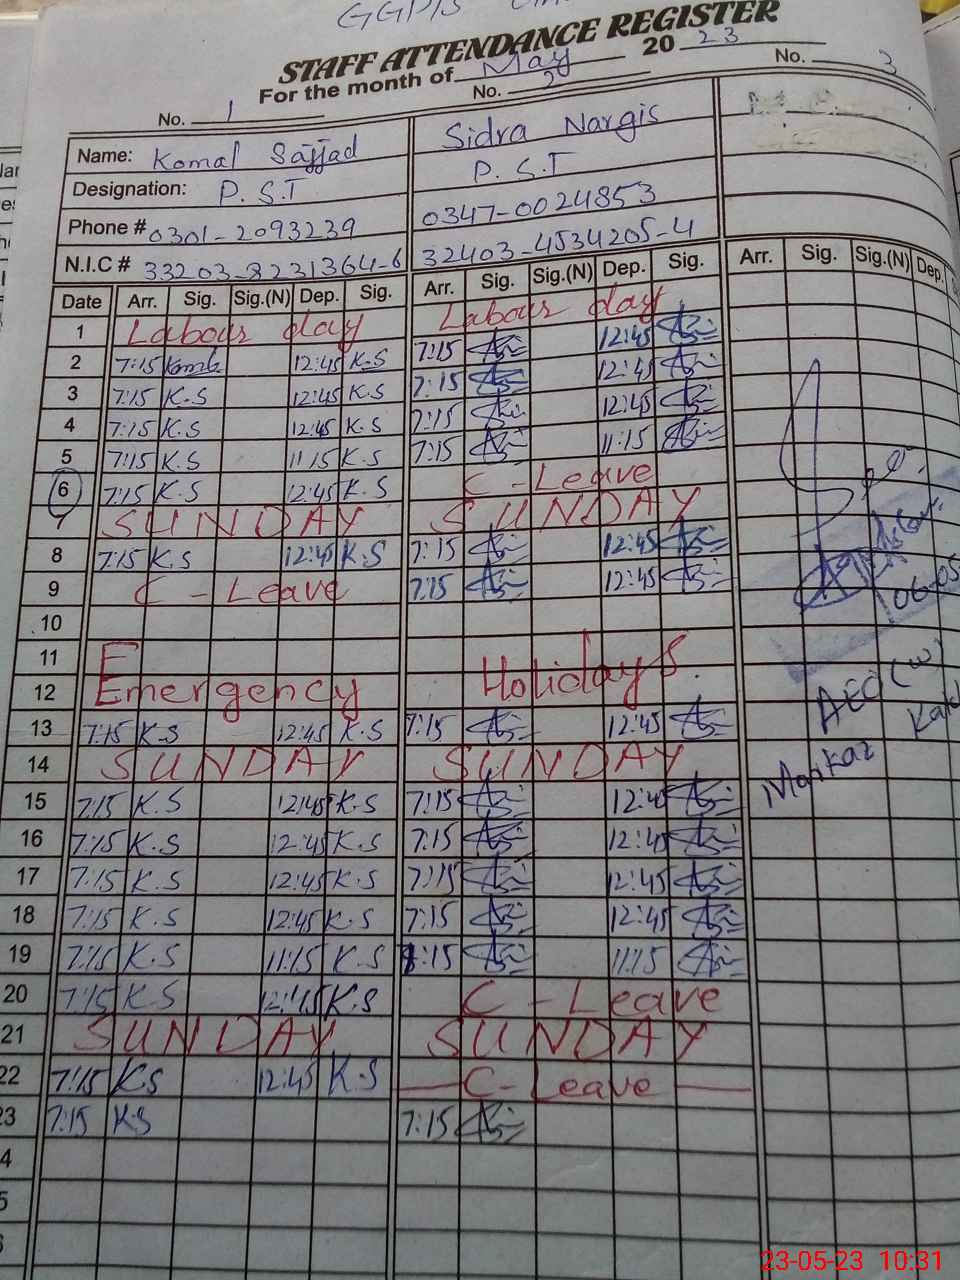 GGPS
STAFF ATTENDANCE REGISTER
For the month of May 2023
No. 1 No. 2 No. 3
Name: Komal Sajjad Sidra Nargis
Designation: P.S.T P.S.T
Phone # 0301-2093239 0347-0024853
N.I.C # 33203-8231364-6 32403-4534205-4
Date Arr. Sig. Sig.(N) Dep. Sig. Arr. Sig. Sig.(N) Dep. Sig. Arr. Sig. Sig.(N) Dep.
1 Labour day Labour day
2 7:15 Komal 12:45 K.S 7:15 12:45
3 7:15 K.S 12:45 K.S 7:15 12:45
4 7:15 K.S 12:45 K.S 7:15 12:45
5 7:15 K.S 11:15 K.S 7:15 11:15
6 7:15 K.S 12:45 K.S C-Leave
7 SUNDAY SUNDAY
8 7:15 K.S 12:45 K.S 7:15 12:45
9 C-Leave 7:15 12:45
10
11
12 Emergency Holidays.
13 7:15 K.S 12:45 K.S 7:15 12:45
14 SUNDAY SUNDAY
15 7:15 K.S 12:45 K.S 7:15 12:45
16 7:15 K.S 12:45 K.S 7:15 12:45
17 7:15 K.S 12:45 K.S 7:15 12:45
18 7:15 K.S 12:45 K.S 7:15 12:45
19 7:15 K.S 11:15 K.S 8:15 11:15
20 7:15 K.S 12:45 K.S C-Leave
21 SUNDAY SUNDAY
22 7:15 KS 12:45 K.S C-Leave
23 7:15 KS 7:15
4
5
06-05
AEO (W)
Markaz
23-05-23 10:31